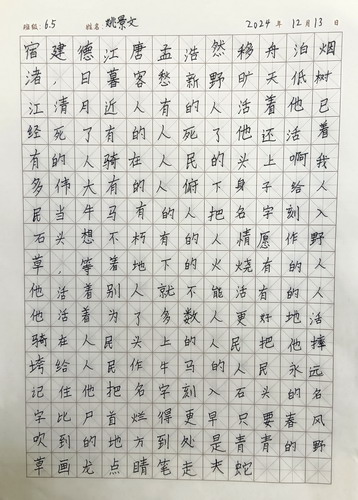 班级: 6.5 姓名 姚景文 2024 年 12 月 13 日
宿建德江唐孟浩然移舟泊烟
渚 日暮客愁新野旷天低树
江清月近人有的人活着他已
经死了有的人死了他还活着
有的人骑在人民的头上啊我
多伟大有的人俯下身子给人
民当牛马有的人把名字刻入
石头想不朽有的人情愿作野
草,等着地下的火烧有的人
他活着别人就不能活有的人
他活着为了多数人更好地活
骑在人民头上的人民把他摔
垮给人民作牛马的人民永远
记住他把名字刻入石头的名
字比尸首烂得更早只要春风
吹到的地方到处是青青的野
草画龙点睛笔走龙蛇